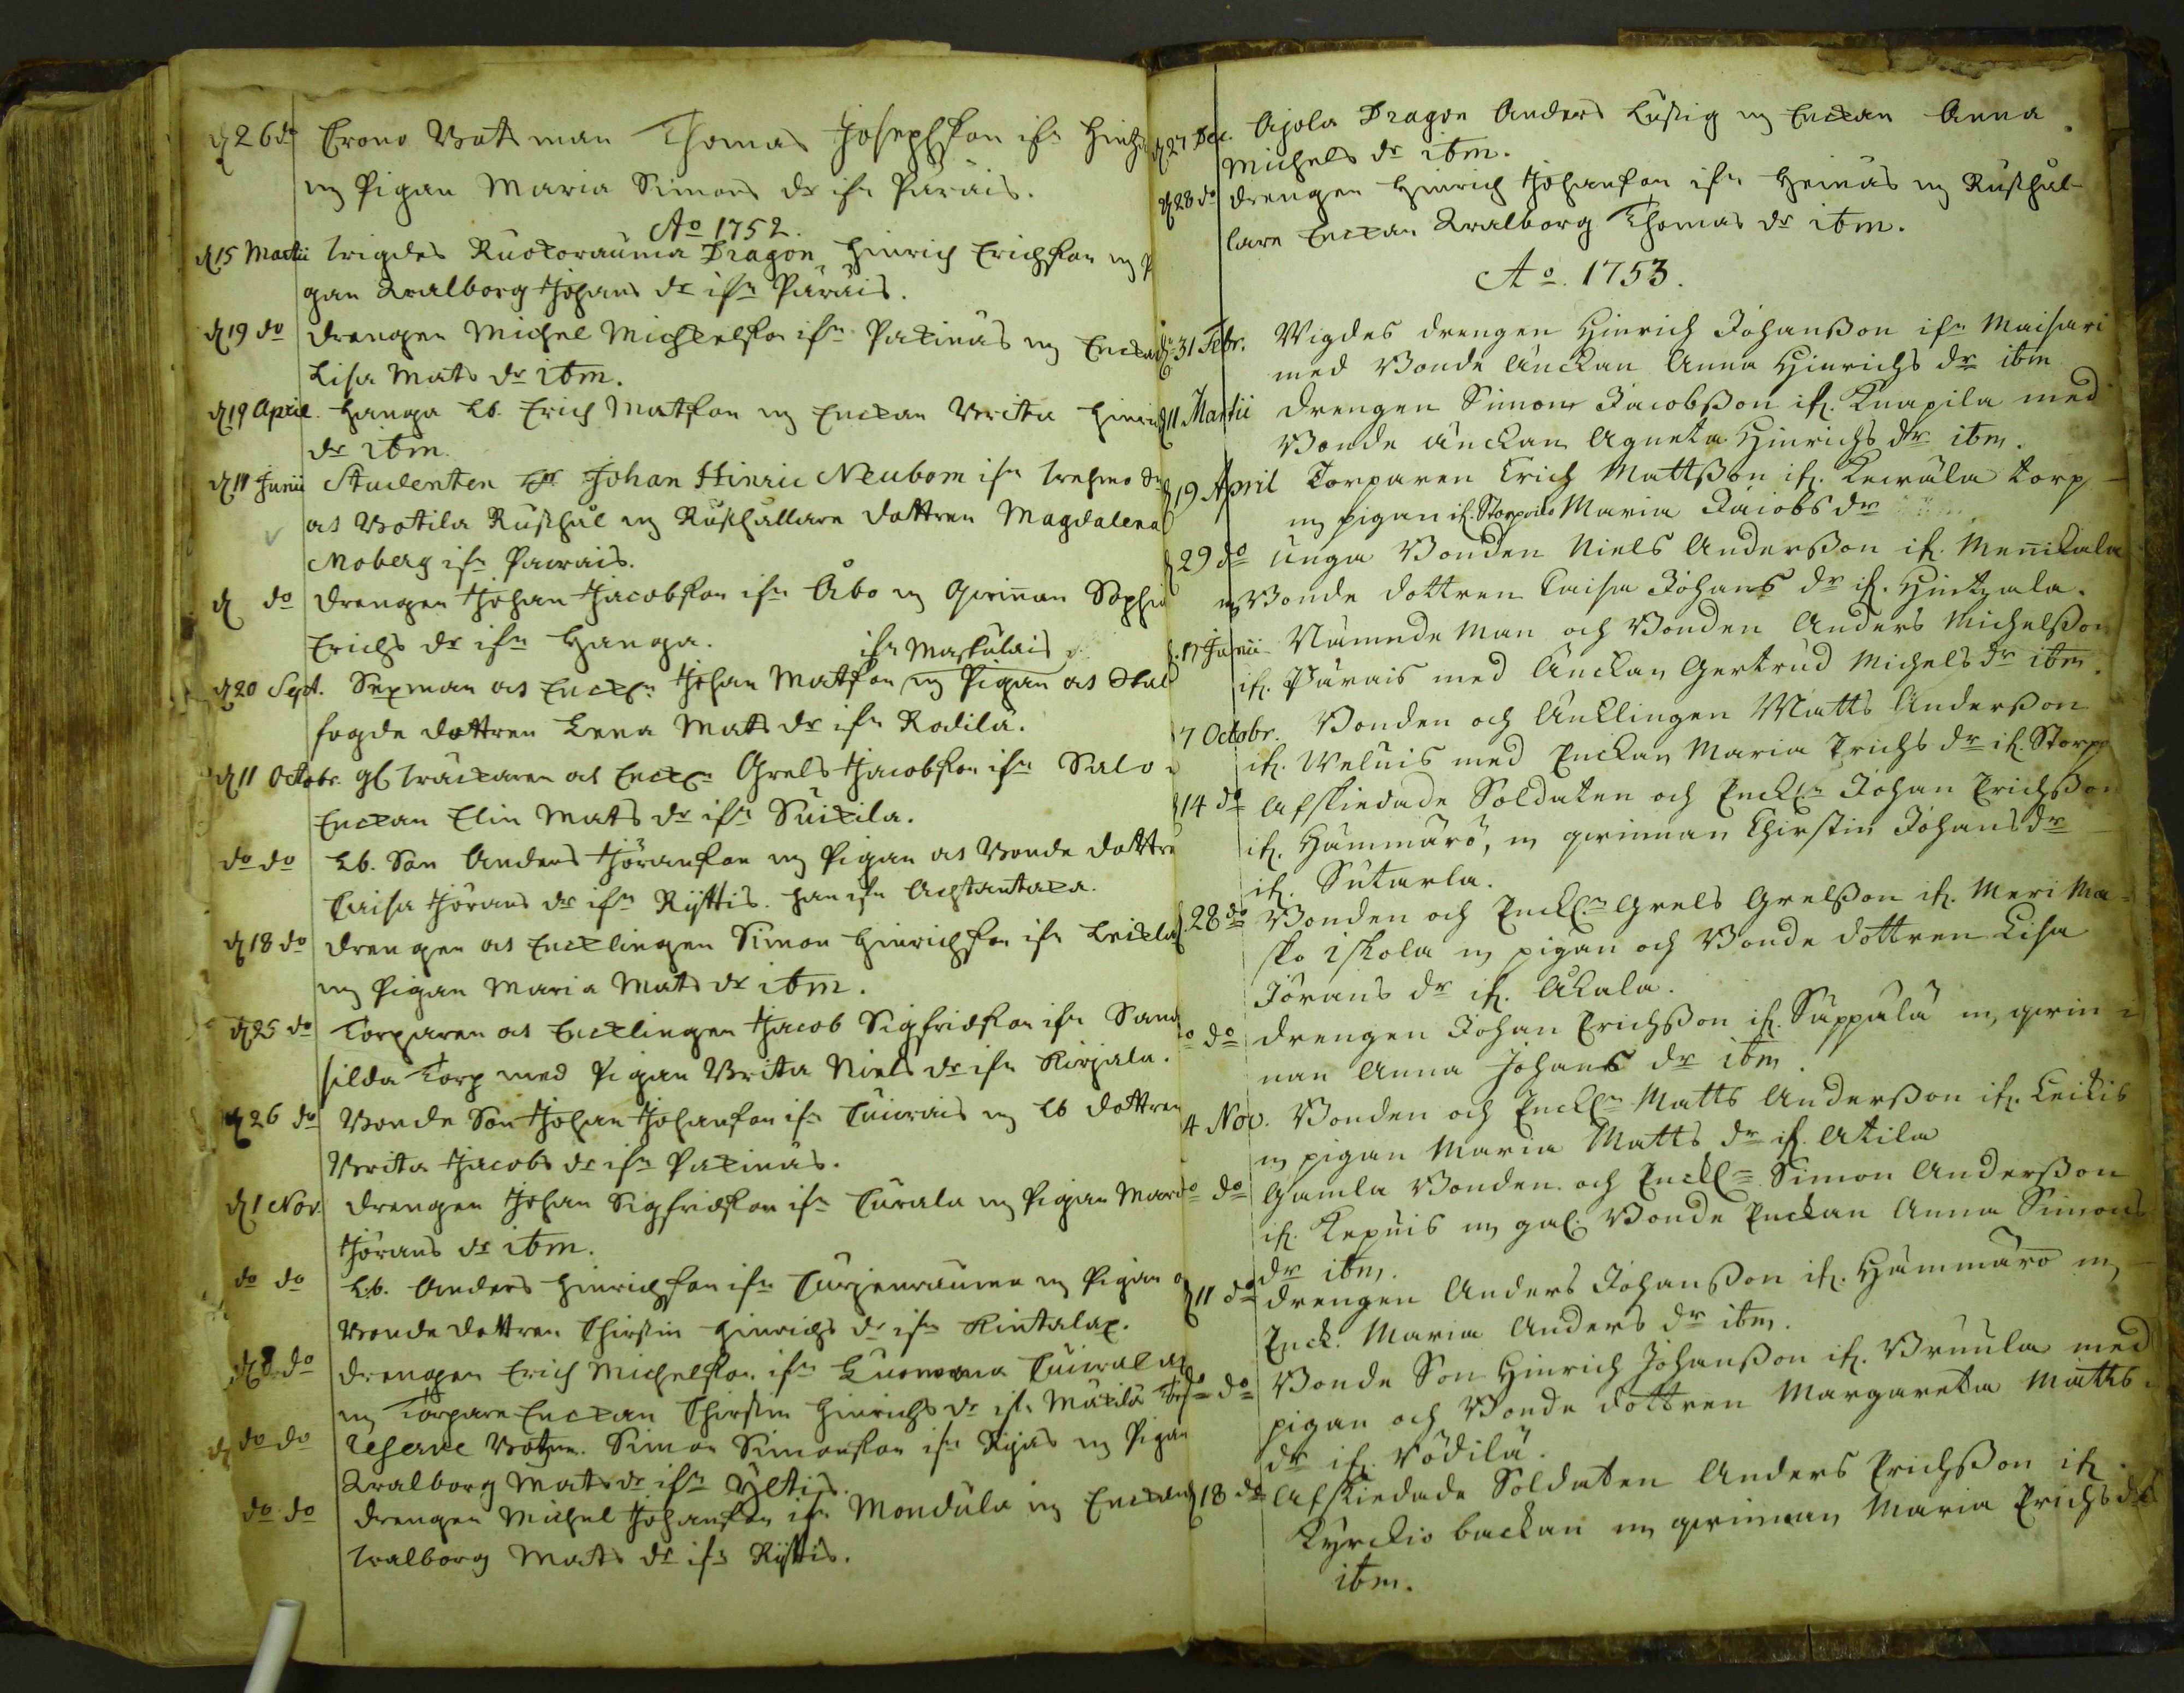 d 26 do Crono Botsman Thomas Josephson ifn
m Pigan Maria Simons dr ifn Päräis.
Ao 1752.
d 15 Martii Wigdes Ruokorauma Dragon Hinrich Erichson m P
gan Walborg Johans dr ifn Päräis.
d 19 do drengen Michel Michelson ifn Pakinas m Enckan
Lisa Mats dr ibm.
d 19 April. Hanga Lb. Erich Matson m Enckan Brita Hinrichs
dr ibm.
d 11 Junii Studenten Hr Johan Hinric Neubom ifn
as Botila Rusthål m Rusthållare dottren Magdalena
Moberg ifn Pävräis.
d do drengen Johan Jacobson ifn Åbo m Qvinnan Sophia
Erichs dr ifn Hanga.
ifn Maskulais
d 20 Sept. Sexman as Enckn Johan Matson m Pigan as Stal
fogde dottren Lena Mats dr ifn Radila.
d 11 Octobr. gl as Enckn Grels Jacobson ifn Salo
Enckan Elin Mats dr ifn Suikila.
do do Lb. Son Anders Jöranson m Pigan as Bonde dottren
Caisa Jörans dr ifn Ryttis. han ifn
d 18 do drengen as Encklingen Simon Hinrichson ifn
m Pigan Maria Mats dr ibm.
d 25 do Torparen as Encklingen Jacob Sigfridson ifn Sand
silda Torp med Pigan Brita Niels dr ifn Kirjala.
d 26 do Bonde Son Johan Johanson ifn m Lb dottren
Brita Jacobs dr ifn Pakinas.
d 1 Nov. drengen Johan Sigfridson ifn m Pigan
Jörans dr ibm.
do do Lb. Anders Hinrichson ifn m Pigan o
Bonde dottren Chirstin Hinrichs dr ifn Rintalax.
d 8 do drengen Erich Michelson ifn
m Torpare Enckan Chirstin Hinrichs dr ifn
do do Reserve Botsm. Simon Simonson ifn m Pigan
Walborg Mats dr ifn Yltis.
do do drengen Michel Johanson ifn Mondula m Enckan
Walborg Mats dr ifn Ryttis.
d 27 Dec. Ajola Dragon Anders Lustig m Enckan Anna
Michels dr ibm.
d 28 do drengen Hinrich Johanson ifn m Rusthål-
lare Enckan Walborg Thomas dr ibm.
Ao. 1753.
d 31 Febr. Wigdes drengen Hinrich Johansson ifn Maisari
med Bonde änckan Anna Hinrichs dr ibm
d 11 Martii drengen Simon Jacobsson if. Knapila med
Bonde änckan Agneta Hinrichs dr ibm.
d 19 April Torparen Erich Mattsson if. torp
m pigan if. Maria Jacobs dr
d 29 do unga Bonden Niels Andersson if. Mennikala
m Bonde dottren Caisa Johans dr if.
d. 17 Junii Nämnde Man och Bonden Anders Michelsson
if. Päräis med änckan Gertrud Michels dr ibm.
d 7 Octobr. Bonden och änklingen Matts Andersson
if. med Enckan Maria Erichs dr if. Storp
d 14 do Afskiedade Soldaten och Enckln Johan Erichsson
if. Hammärö, m qvinnan Chirstin Johans dr
if. Sutarla.
d. 28 do Bonden och Enckln Grels Grelsson if. Meri Ma-
sko m pigan och Bonde dottren Lisa
Jörans dr if.
do do drengen Johan Erichsson if. m, qvin
nan Anna Johans dr ibm.
4 Nov. Bonden och Enckln Matts Andersson if. Leikis
m pigan Maria Matts dr if. Atila
do do Gamla Bonden och Enckln Simon Andersson
if. m, gl. Bonde Enckan Anna Simons
dr ibm.
d 11 do drengen Anders Johansson if. Hammärö m,
Enck. Maria Anders dr ibm.
do do Bonde Son Hinrich Johansson if. med
pigan och Bonde dottren Margareta Matts
dr if.
d 18 do Afskiedade Soldaten Anders Erichsson if.
Kyrckio backan m qvinnan Maria Erichs dr
ibm.